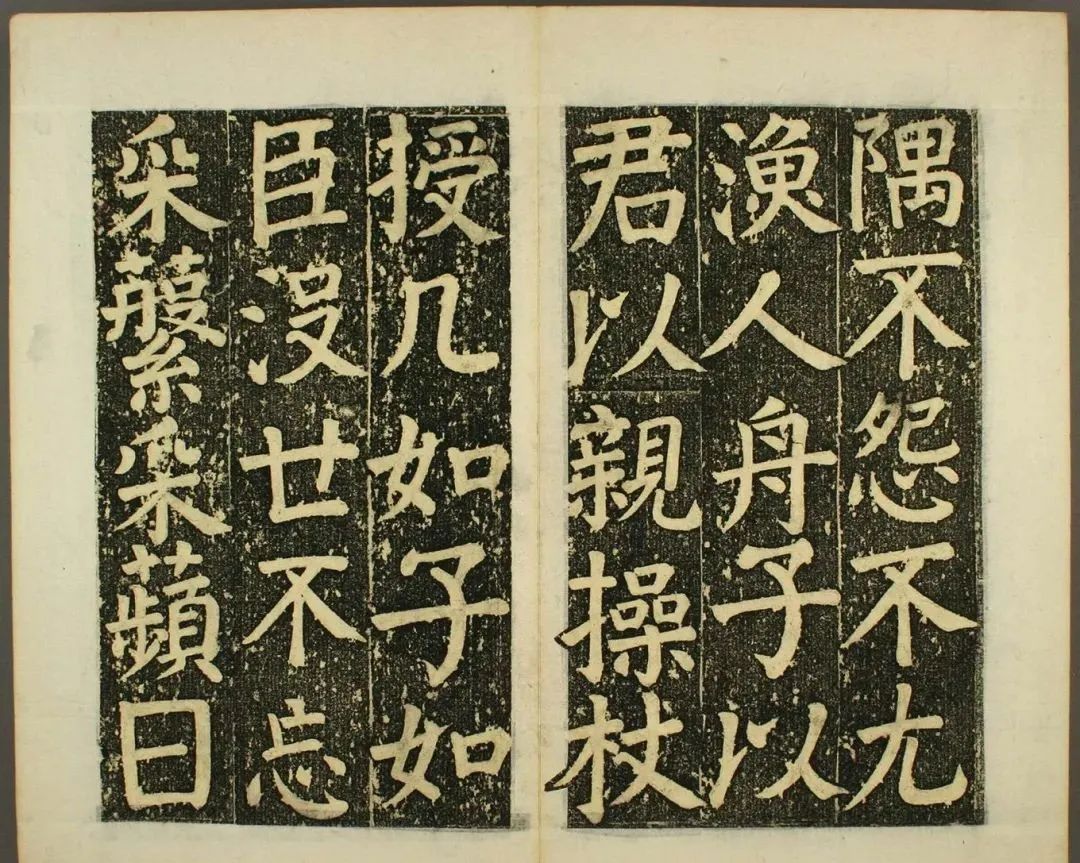 隅不怨不尤
漁人舟子以
君以親操杖
授几如子如
臣沒世不忘
采蘩采蘋曰